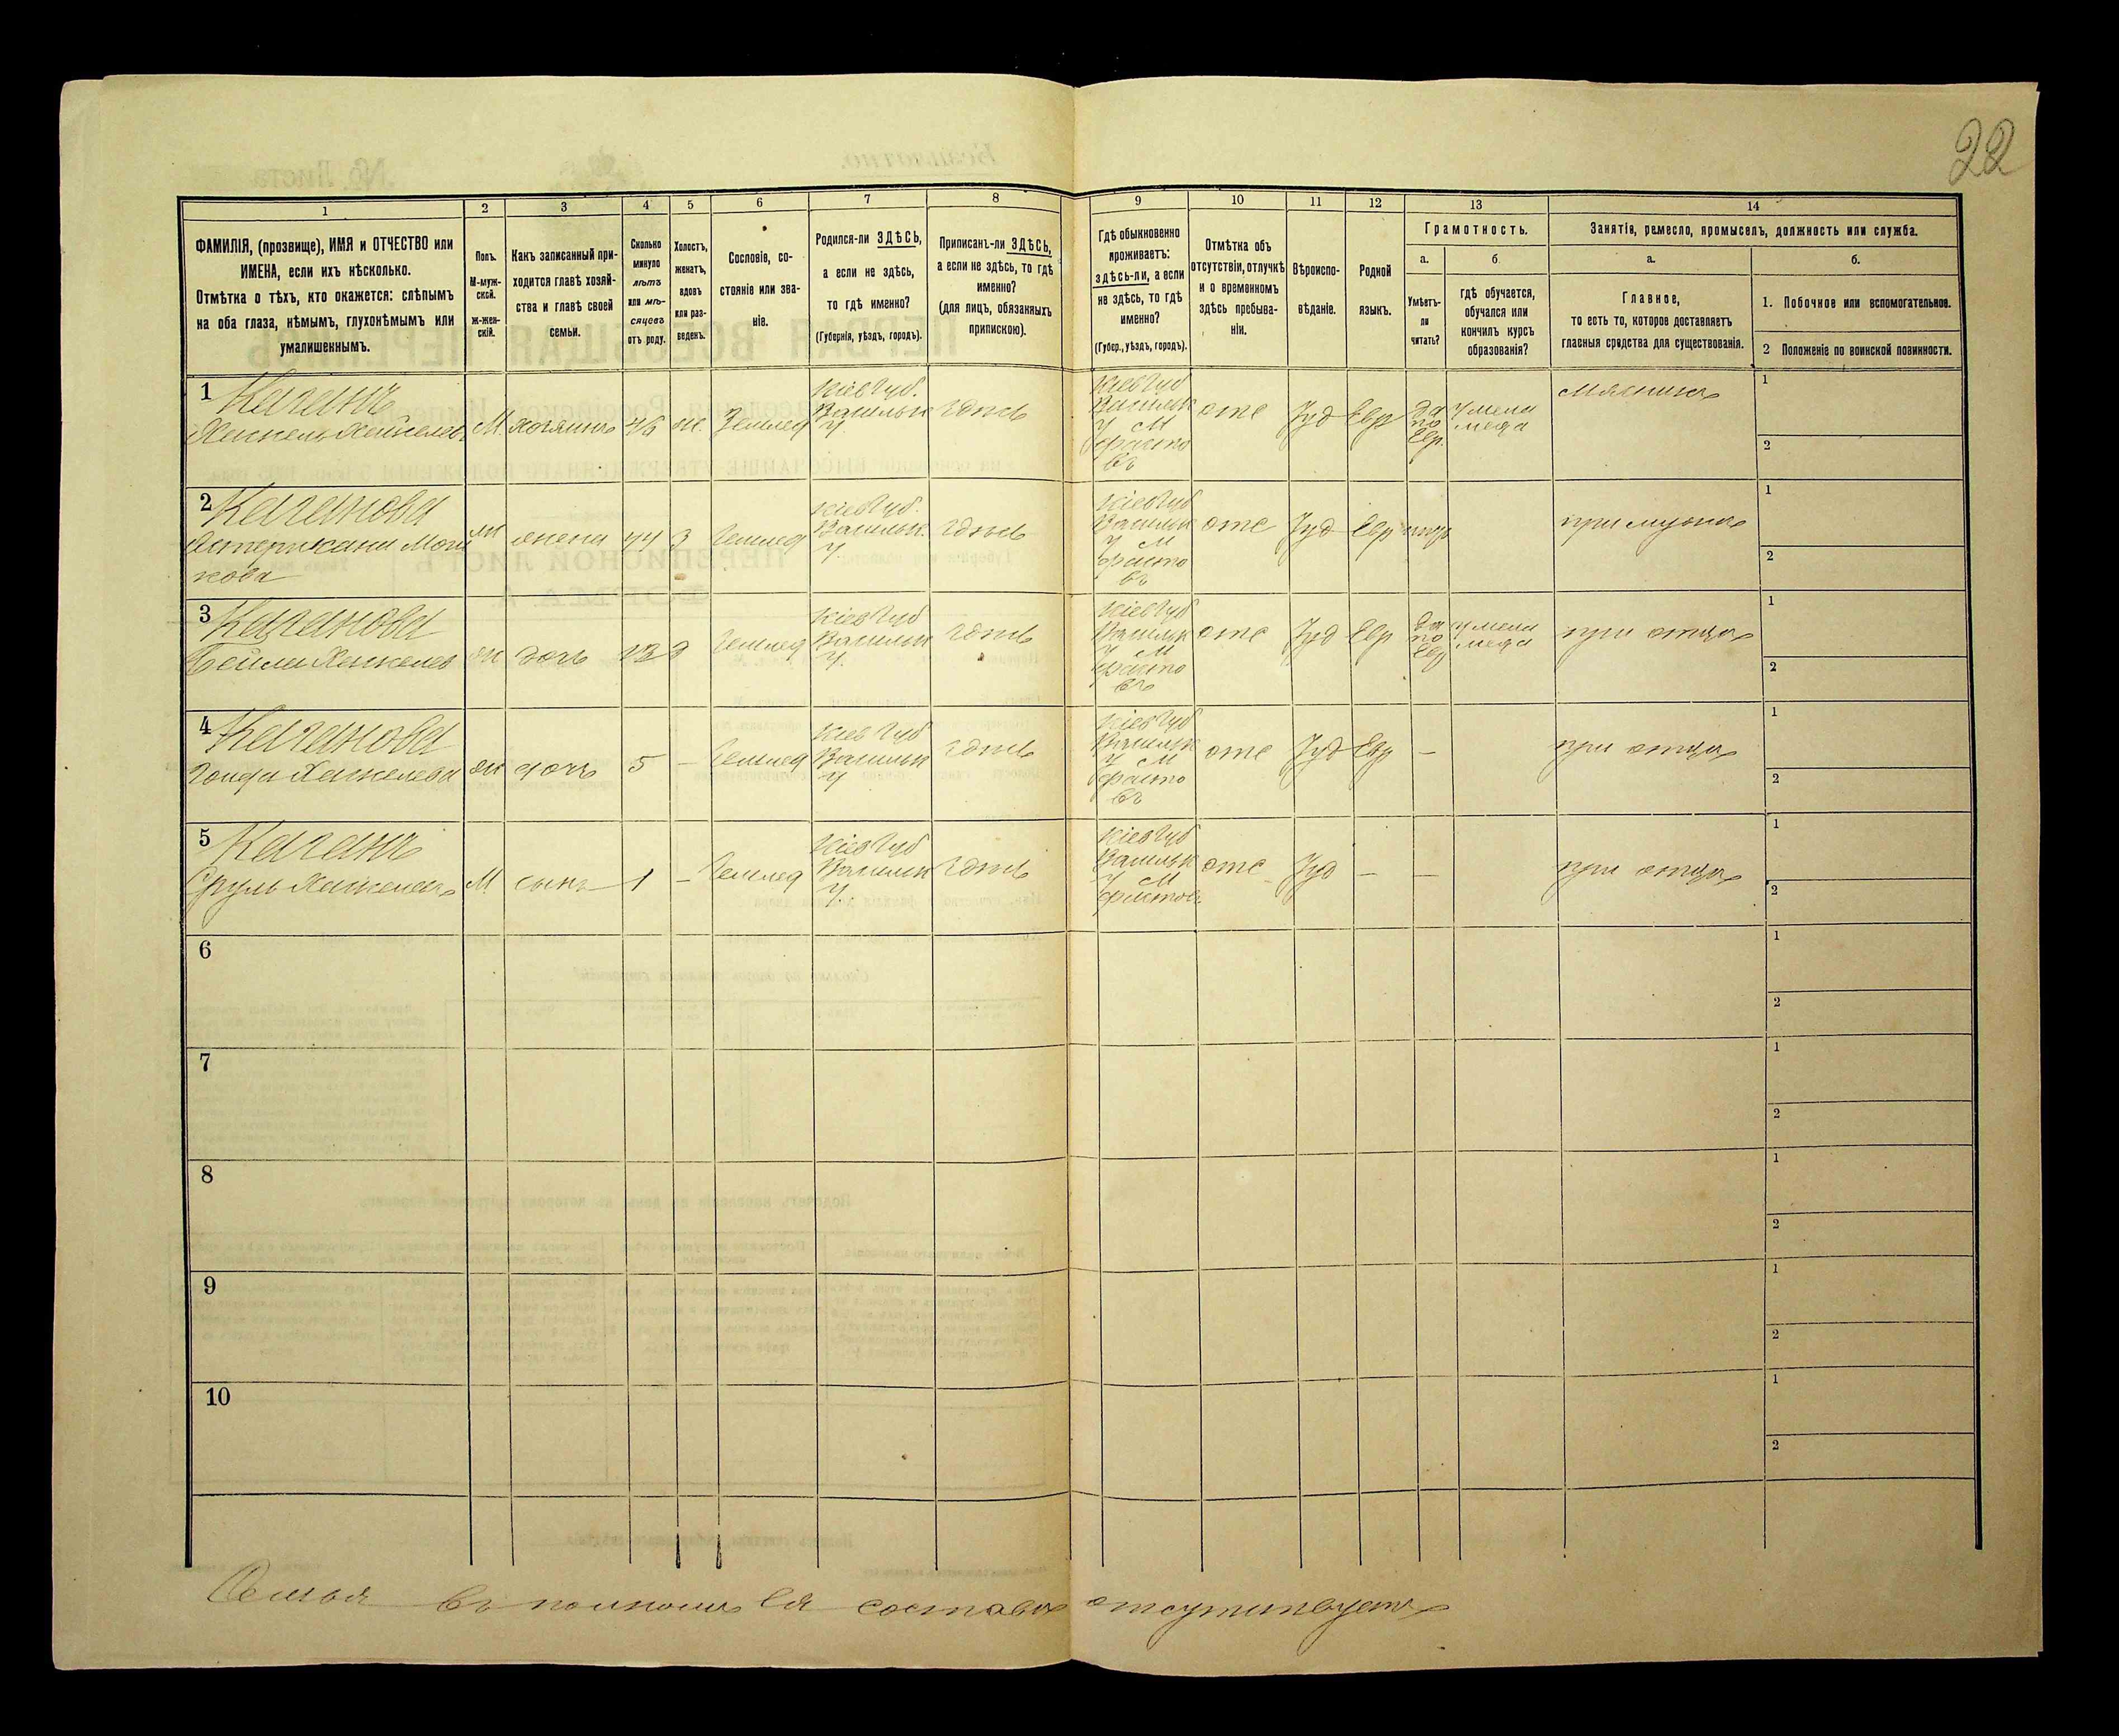 22
1
2
3
4
5
6
7
8
9
10
11
12
13
14
ФАМИЛІЯ, (прозвище), ИМЯ и ОТЧЕСТВО или
ИМЕНА, если ихъ нѣсколько.
Отмѣтка о тѣхъ, кто окажется: слѣпымъ
на оба глаза, нѣмымъ, глухонѣмымъ или
умалишеннымъ.
Полъ.
М-муж-
ской.
ж-жен-
скій.
Какъ записанный при-
ходится главѣ хозяй-
ства и главѣ своей
семьи.
Сколько
минуло
лѣтъ
или мѣ-
сяцевъ
отъ роду.
Холостъ,
женатъ,
вдовъ
или раз-
веденъ.
Сословіе, со-
стояніе или зва-
ніе.
Родился-ли ЗДѢСЬ,
а если не здѣсь,
то гдѣ именно?
(Губернія, уѣздъ, городъ).
Приписанъ-ли ЗДѢСЬ,
а если не здѣсь, то гдѣ
именно?
(для лицъ, обязанныхъ
припискою).
Гдѣ обыкновенно
проживаетъ:
здѣсь-ли, а если
не здѣсь, то гдѣ
именно?
(Губер., уѣздъ, городъ).
Отмѣтка объ
отсутствіи, отлучкѣ
и о временномъ
здѣсь пребыва-
ніи.
Вѣроиспо-
вѣданіе.
Родной
языкъ.
Грамотность.
а.
Умѣетъ-
ли
читать?
б.
гдѣ обучается,
обучался или
кончилъ курсъ
образованія?
Занятіе, ремесло, промыселъ, должность или служба.
а.
Главное,
то есть то, которое доставляетъ
главныя средства для существованія.
б.
1. Побочное или вспомогательное.
2 Положеніе по воинской повинности.
1 Каганъ
М. хозяинъ 46 ж. Землед
Кіев Губ.
Васильк
У.
здѣсь
Кіев Губ
Васильк
У М
Фасто
въ
отс Іуд Евр
да
по
Евр.
у мела
меда
мясникъ
1
2
2 Каганова
ж жена 44 з Землед
Кіев Губ.
Васильк.
У.
здѣсь
Кіев Губ
Васильк
У М
Фасто
въ
отс Іуд Евр
при мужѣ
1
2
3 Каганова
Бейла Хаскелев ж дочь д Землед
Кіев Губ
Васильк
У.
здѣсь
Кіев Губ
Васильк
У М
Фасто
въ
отс Іуд Евр
да
по
Евр
у мела
меда
при отцѣ
1
2
4 Каганова
ж дочь 5 – Землед
Кіев Губ
Васильк
У
здѣсь
Кіев Губ
Васильк
У М
Фасто
въ
отс Іуд Евр –
при отцѣ
1
2
5 Каганъ
Сруль М сынъ 1 – Землед
Кіев Губ
Васильк
У.
здѣсь
Кіев Губ
Васильк
У М
Фастов.
отс Іуд – –
при отцѣ
1
2
6
1
2
7
1
2
8
1
2
9
1
2
10
1
2
Семья въ полномъ ея составѣ отсутствуетъ